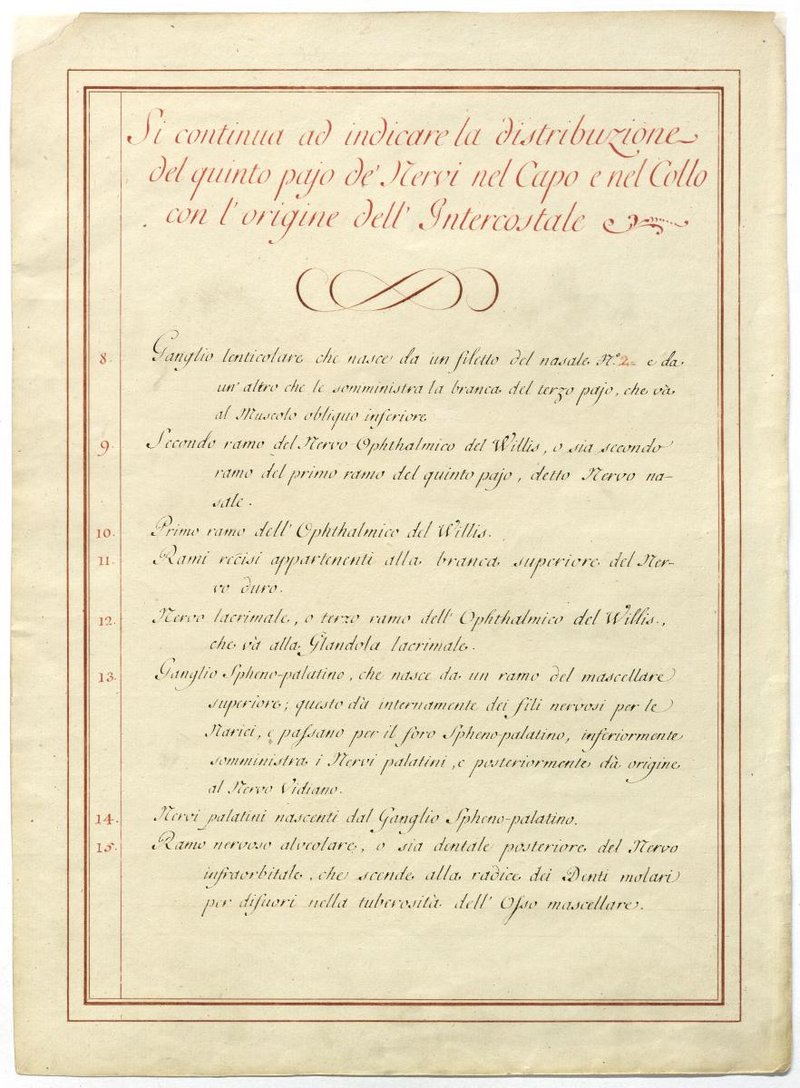 Si continua ad indicare la distribuzione
del quinto pajo de' Nervi nel Capo e nel Collo
con l'origine dell' Intercostale
8. Ganglio lenticolare che nasce da un filetto del nasale N.° 2 e da
un' altro che le somministra la branca del terzo pajo, che và
al Muscolo obliquo inferiore
9. Secondo ramo del Nervo Ophthalmico del Willis, o sia secondo
ramo del primo ramo del quinto pajo, detto Nervo na-
sale.
10. Primo ramo dell' Ophthalmico del Willis.
11. Rami recisi appartenenti alla branca superiore del Ner-
vo duro.
12. Nervo lacrimale, o terzo ramo dell' Ophthalmico del Willis.,
che và alla Glandola lacrimale.
13. Ganglio Spheno-palatino, che nasce da un ramo del mascellare
superiore; questo dà internamente dei fili nervosi per le
Narici, e paſsano per il foro Spheno-palatino, inferiormente
somministra i Nervi palatini, e posteriormente dà origine
al Nervo Vidiano.
14. Nervi palatini nascenti dal Ganglio Spheno-palatino.
15. Ramo nervoso alveolare, o sia dentale posteriore del Nervo
infraorbitale, che scende alla radice dei Denti molari
per difuori nella tuberosità dell' Oſso mascellare.